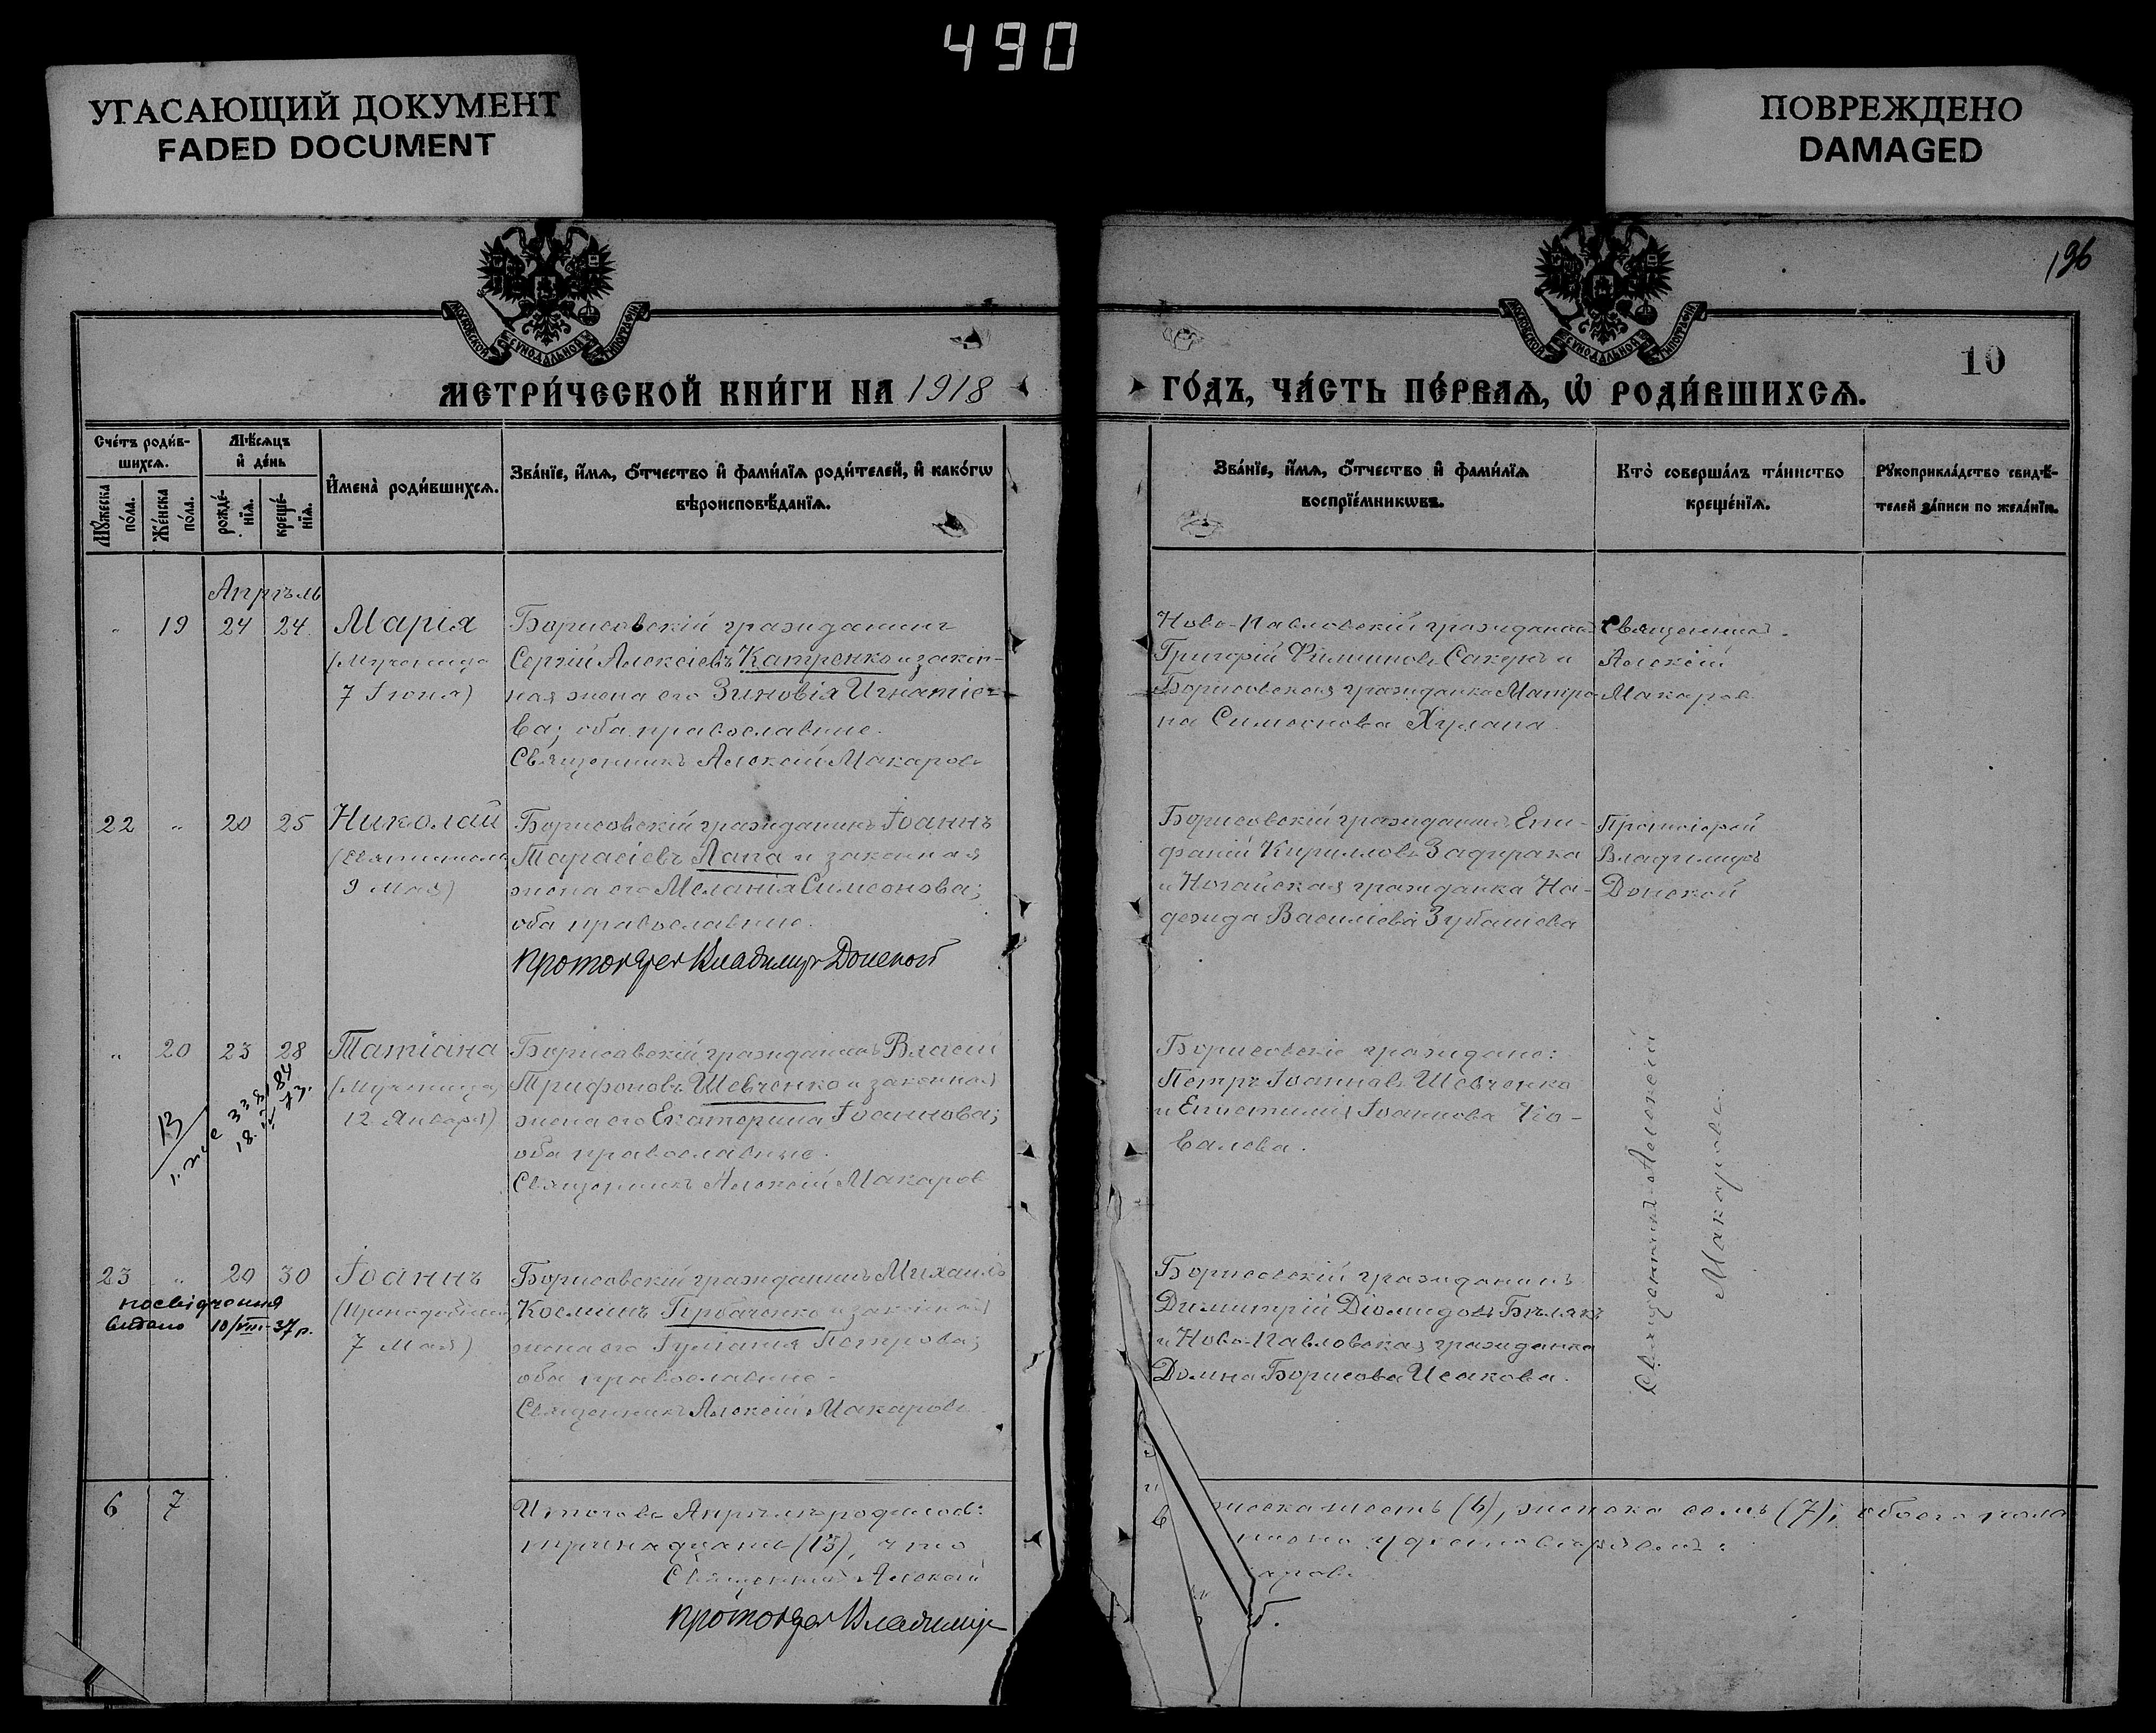 490
УГАСАЮЩИЙ ДОКУМЕНТ
FADED DOCUMENT
ПОВРЕЖДЕНО
DAMAGED
196
МОСКОВСКОЙ СУНОДАЛЬНОЙ ТИПОГРАФІИ
МОСКОВСКОЙ СУНОДАЛЬНОЙ ТИПОГРАФІИ
10
МЕТРИ́ЧЕСКОЙ КНИ́ГИ НА 1918
ГО́ДЪ, ЧА́СТЬ ПЕ́РВАѦ, Ѽ РОДИ́ВШИХСѦ.
Сче́тъ роди́в-
шихсѧ.
Мѣ́сѧцъ
и҆ де́нь
Мꙋ́жеска по́ла.
Же́нска по́ла.
рожде́-
нїѧ.
креще́-
нїѧ.
И҆мена̀ роди́вшихсѧ.
Зва́нїе, и҆́мѧ, ѻ҆́тчество и҆ фами́лїѧ роди́телей, и҆ како́гѡ
вѣроисповѣ́данїѧ.
Зва́нїе, и҆́мѧ, ѻ҆́тчество и҆ фами́лїѧ
воспрїе́мникѡвъ.
Кто̀ соверша́лъ та́инство
креще́нїѧ.
Рꙋкоприкла́дство свидѣ́-
телей за́писи по жела́нїю.
Апрѣль
" 19 24 24 Марія
(Мученица
7 Іюня)
Борисовскій гражданинъ
Сергій Алексіевъ Катренко и закон-
ная жена его Зиновія Игнатіе-
ва; оба православные.
Священникъ Алексій Макаровъ
Ново-Павловскій гражданинъ
Григорій Филиповъ Сакунъ и
Борисовская гражданка Матро
на Симеонова Хулапа.
Священникъ
Алексій
Макаровъ
22 " 20 25 Николай
(Святитель
9 Мая)
Борисовскій гражданинъ Іоаннъ
Тарасіевъ Лапа и законная
жена его Меланія Симеонова;
оба православные.
Протоіерей Владимиръ Донской
Борисовскій гражданинъ Епи-
фаній Кирилловъ Задирака
и Ногайская гражданка На-
дежда Василіева Зубашева
Протоіерей
Владимиръ
Донской
" 20 23 28 Татіана
(Мученица
12 Января)
Борисовскій гражданинъ Власій
Трифоновъ Шевченко и законная
жена его Екатерина Іоаннова;
оба православные.
Священникъ Алексій Макаровъ
Борисовскіе граждане:
Петръ Іоанновъ Шевченко
и Епистимія Іоаннова Ко-
валева.
Священникъ Алексій
Макаровъ.
23 " 20 30 Іоаннъ
(Преподобный
7 Мая)
посвідчення
видано 10/VIII-37 р.
Борисовскій гражданинъ Михаилъ
Косминъ Горбаченко и законная
жена его Іуліанія Петрова;
оба православные.
Священникъ Алексій Макаровъ
Борисовскій гражданинъ
Димитрій Діомидовъ Бѣлякъ
и Ново-Павловская гражданка
Домна Борисова Исакова.
6 7
Итого въ Апрѣлѣ родилось:
тринадцать (13), что
Священникъ Алексій
Протоіерей Владимиръ
шесть (6), женска семь (7); обоего пола
удостовѣряемъ:
аровъ